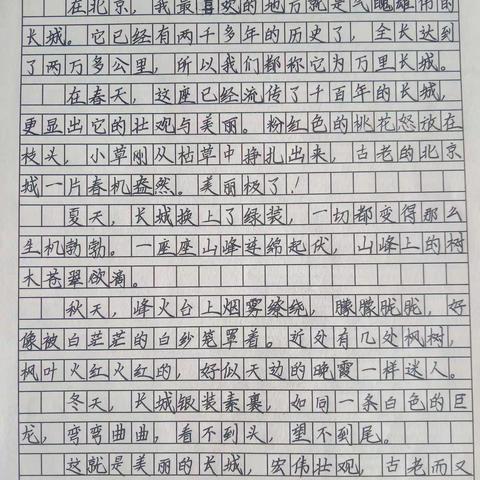 在北京，我最喜欢的地方就是气魄雄伟的
长城。它已经有两千多年的历史了，全长达到
了两万多公里，所以我们都称它为万里长城。
在春天，这座已经流传了千百年的长城，
更显出它的壮观与美丽。粉红色的桃花怒放在
枝头，小草刚从枯草中挣扎出来，古老的北京
城一片春机盎然。美丽极了！
夏天，长城换上了绿装，一切都变得那么
生机勃勃。一座座山峰连绵起伏，山峰上的树
木苍翠欲滴。
秋天，峰火台上烟雾缭绕，朦朦胧胧，好
像被白茫茫的白纱笼罩着。近处有几处枫树，
枫叶火红火红的，好似天边的晚霞一样迷人。
冬天，长城银装素裹，如同一条白色的巨
龙，弯弯曲曲，看不到头，望不到尾。
这就是美丽的长城，宏伟壮观，古老而又